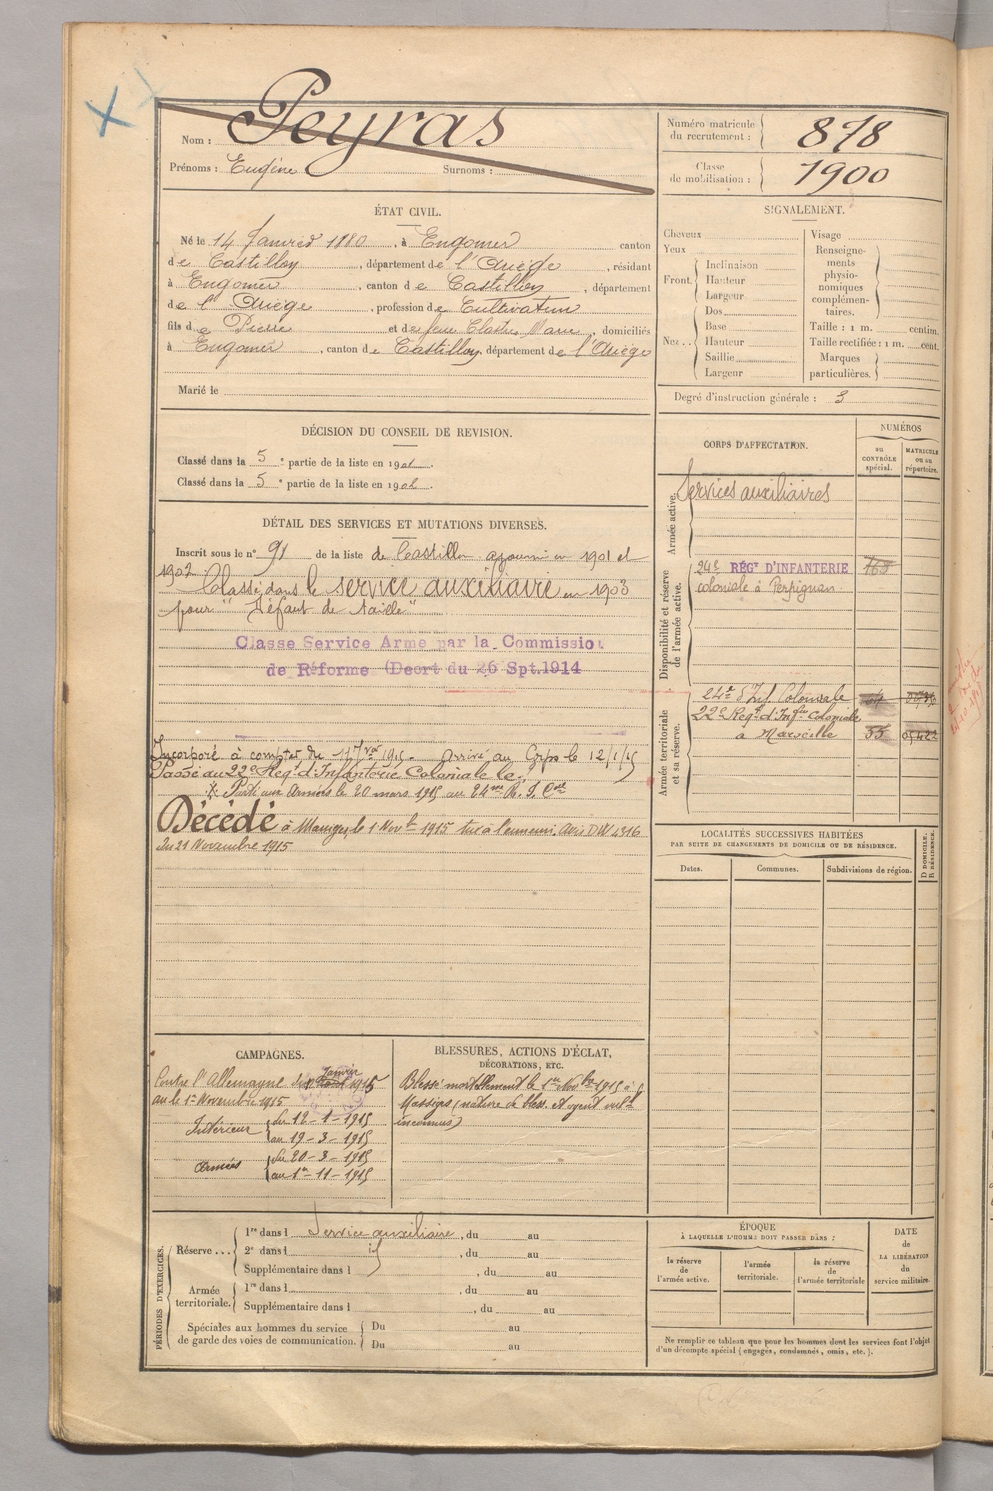 Nom : Peyras
Prénoms : Eugène Surnoms :
Numéro matricule du recrutement : 878
Classe de mobilisation : 1900
ÉTAT CIVIL.
Né le 14 Janvier 1880, à Engomer canton
de Castillon, département de l'Ariège, résidant
à Engomer, canton de Castillon, département
de l'Ariège, profession de Cultivateur
fils de Pierre et de feue Clastres Marie, domiciliés
à Engomer, canton de Castillon, département de l'Ariège
Marié le
SIGNALEMENT.
Cheveux
Yeux
Front.
Inclinaison
Hauteur
Largeur
Nez..
Dos
Base
Hauteur
Saillie
Largeur
Visage
Renseigne-
ments
physio-
nomiques
complémen-
taires.
Taille : 1 m. centim.
Taille rectifiée : 1 m. cent.
Marques
particulières.
Degré d'instruction générale : 3
DÉCISION DU CONSEIL DE REVISION.
Classé dans la 5e partie de la liste en 1901.
Classé dans la 5e partie de la liste en 1902.
DÉTAIL DES SERVICES ET MUTATIONS DIVERSES.
Inscrit sous le n° 91 de la liste de Castillon ajourné en 1901 et
1902. Classé dans le service auxiliaire en 1903
pour "Défaut de taille"
Classe Service Arme par la Commission
de Réforme (Decret du 26 Spt.1914
Incorporé à compter du 11 Jer 1915. Arrivé au Corps le 12/1/15
Passé au 22e Regt d'Infanterie Coloniale le.
Parti aux Armées le 20 mars 1915 au 24me R. I. Cale
Décédé à Massiges le 1 Novbre 1915 tué à l'ennemi. Avis DW 4316
du 21 Novembre 1915
CORPS D'AFFECTATION.
NUMÉROS
DU CONTRÔLE spécial.
MATRICULE ou au répertoire.
Armée active.
Services auxiliaires
Disponibilité et réserve de l'armée active.
24e RÉGT D'INFANTERIE
coloniale à Perpignan
Armée territoriale et sa réserve.
24e d'Inf. Coloniale
22e Regt d'Infrie Coloniale
à Marseille
LOCALITÉS SUCCESSIVES HABITÉES
PAR SUITE DE CHANGEMENTS DE DOMICILE OU DE RÉSIDENCE.
Dates. Communes. Subdivisions de région.
D DOMICILE. R RÉSIDENCE.
CAMPAGNES.
Contre l'Allemagne du Janvier 1915
au le 1er Novembre 1915
Intérieur du 12-1-1915
au 19-3-1915
Armées du 20-3-1915
au 1er-11-1915
BLESSURES, ACTIONS D'ÉCLAT,
DÉCORATIONS, ETC.
Blessé mortellement le 1er Novbre 1915 à
Massiges (nature de bless. et agent vulnt
inconnus)
PÉRIODES D'EXERCICES.
Réserve ...
1re dans l Service auxiliaire, du au
2e dans l id, du au
Supplémentaire dans l, du au
Armée territoriale.
1re dans l, du au
Supplémentaire dans l, du au
Spéciales aux hommes du service
de garde des voies de communication.
Du au
Du au
ÉPOQUE
À LAQUELLE L'HOMME DOIT PASSER DANS :
la réserve de l'armée active.
l'armée territoriale.
la réserve de l'armée territoriale
DATE
de
LA LIBÉRATION
du
service militaire.
Ne remplir ce tableau que pour les hommes dont les services font l'objet
d'un décompte spécial (engagés, condamnés, omis, etc.).